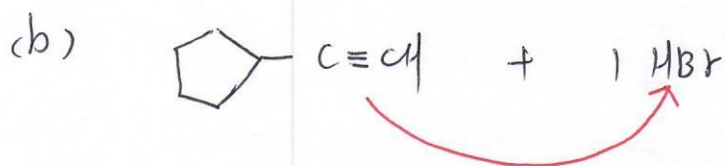 (b) C≡CH + 1 HBr